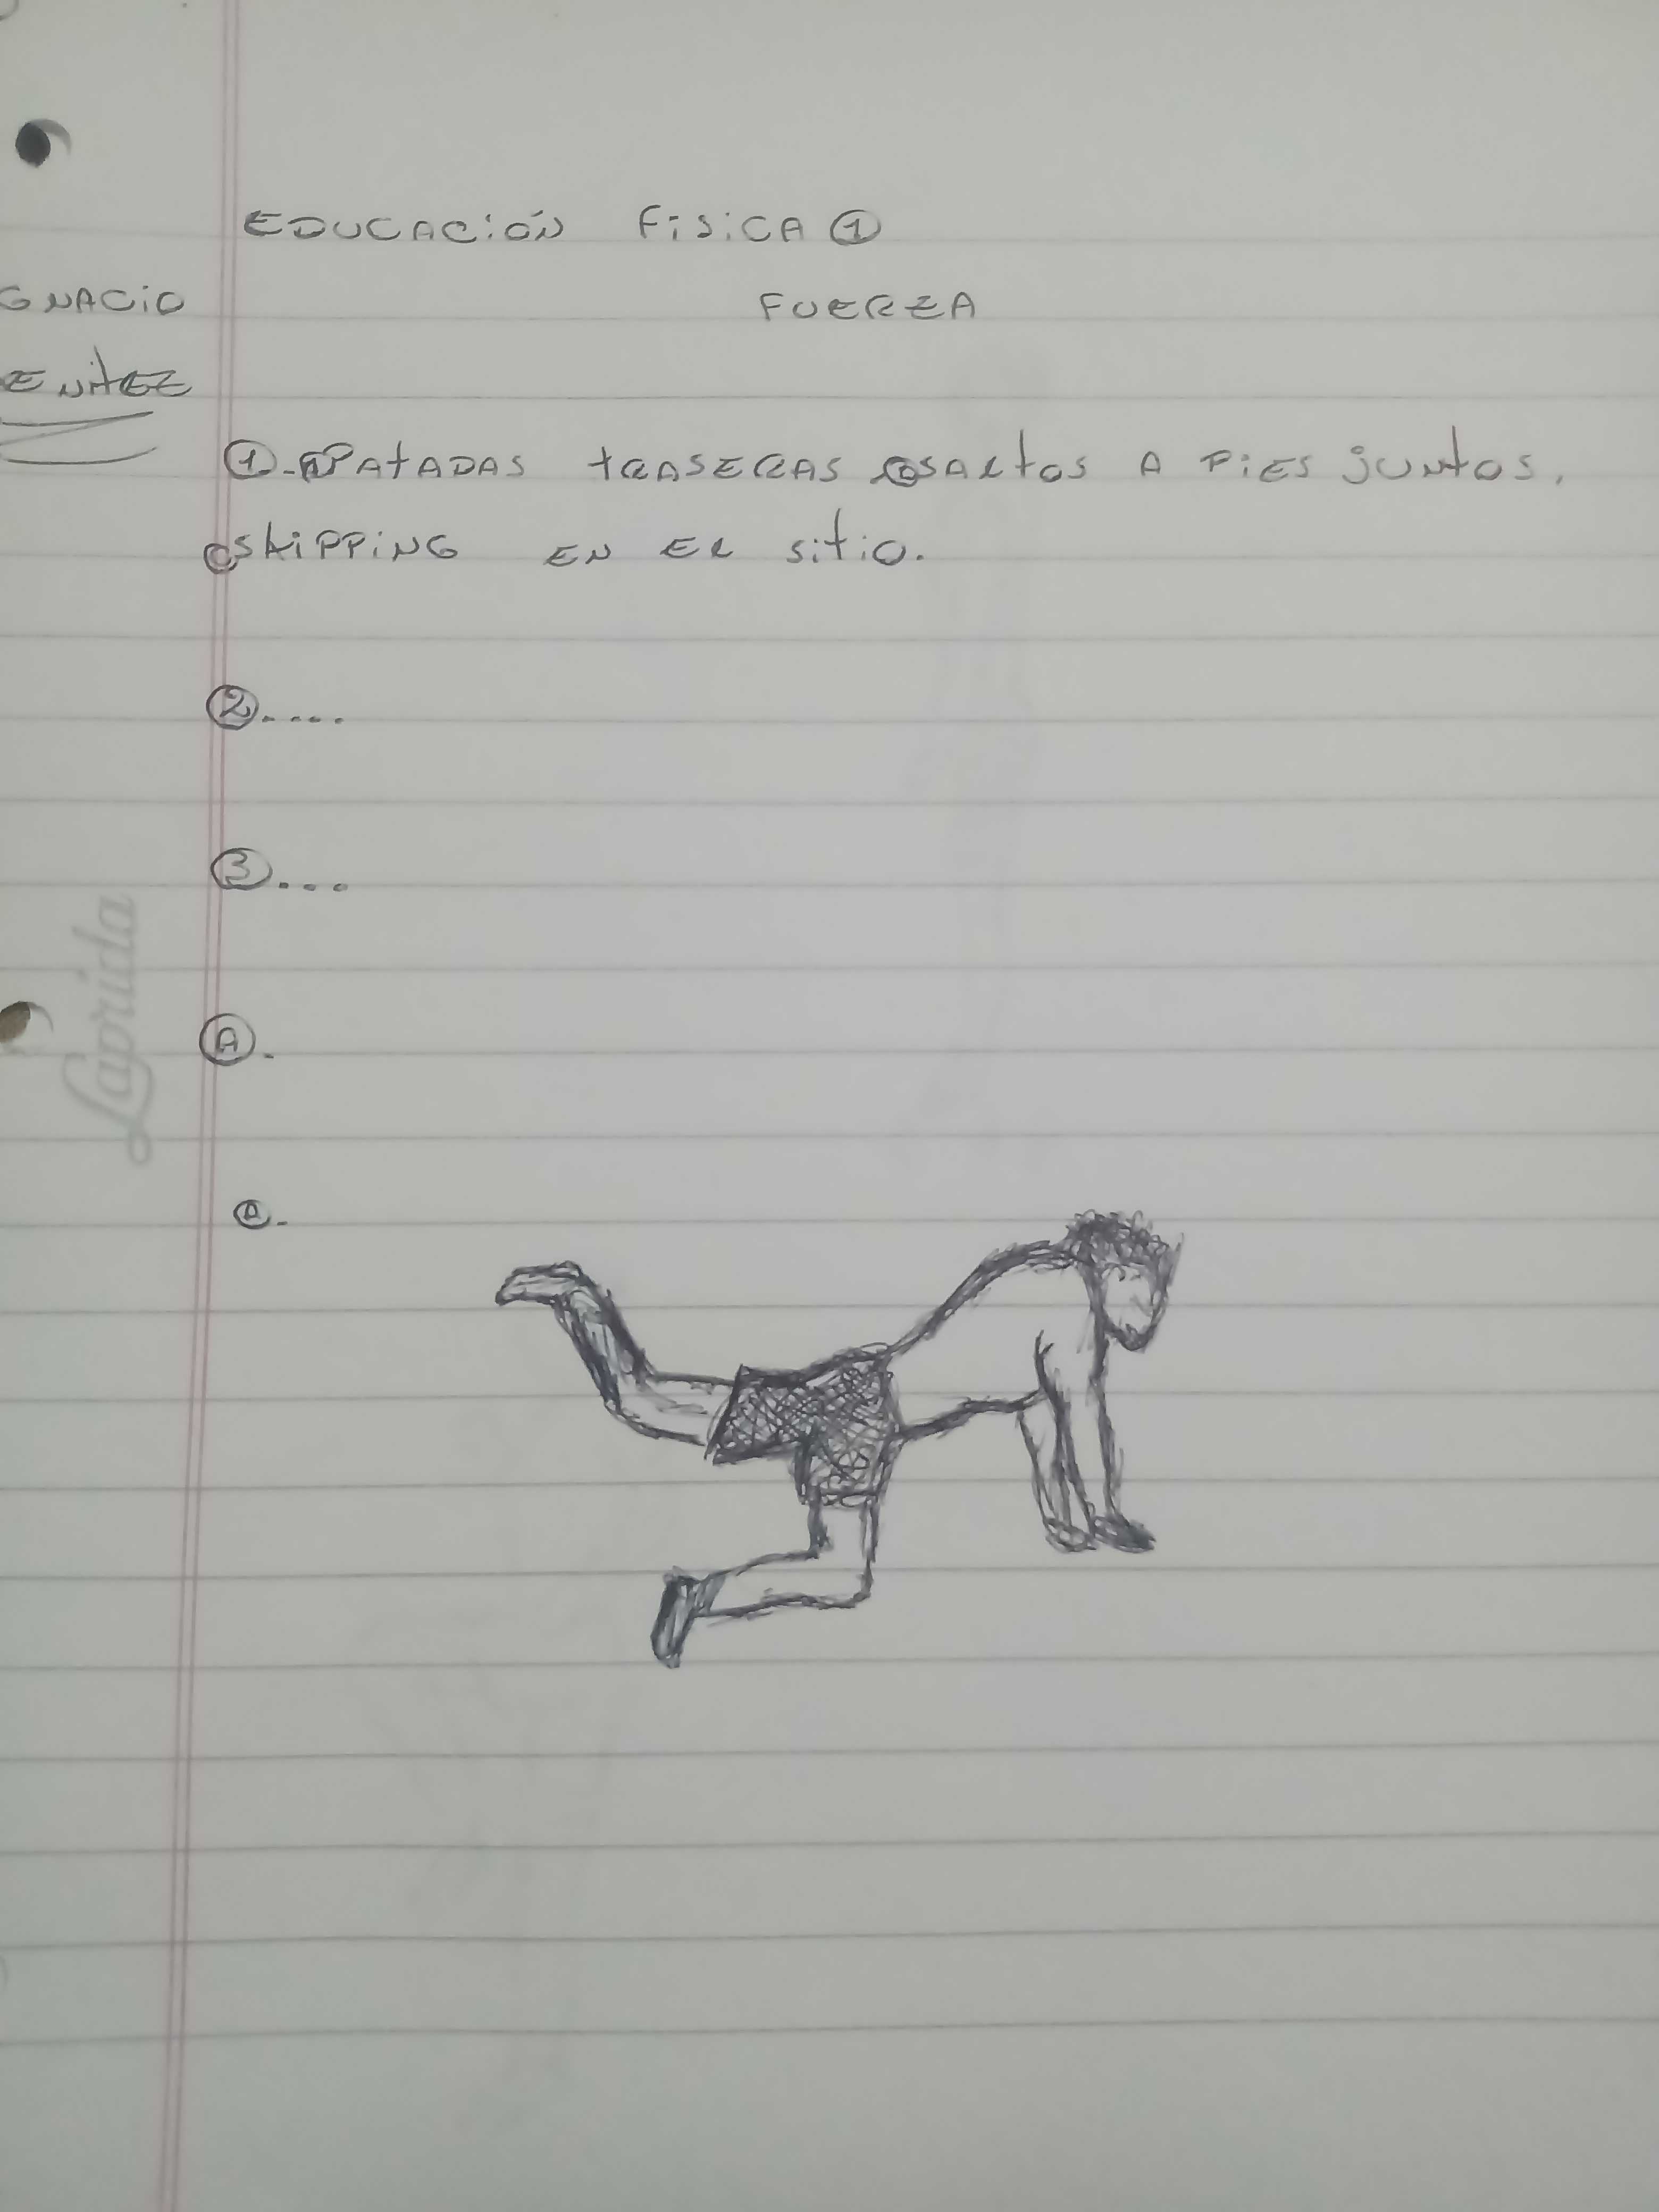 EDUCACIÓN FISICA ①
GNACIO
FUERZA
ENITEZ
①-Ⓐ PATADAS TRASERAS Ⓑ SALTOS A PIES JUNTOS,
Ⓒ SKIPPING EN EL SITIO.
②....
③...
Ⓐ.
Ⓐ.
Laprida